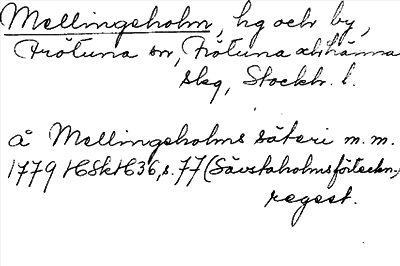 Mellingeholm, hg och by,
Frötuna sn, Frötuna o. Länna
skg, Stockh. l.
å Mellingeholms säteri m.m.
1779 HSkH36, s. 77 (Sävstaholmsförteckn.,
regest.